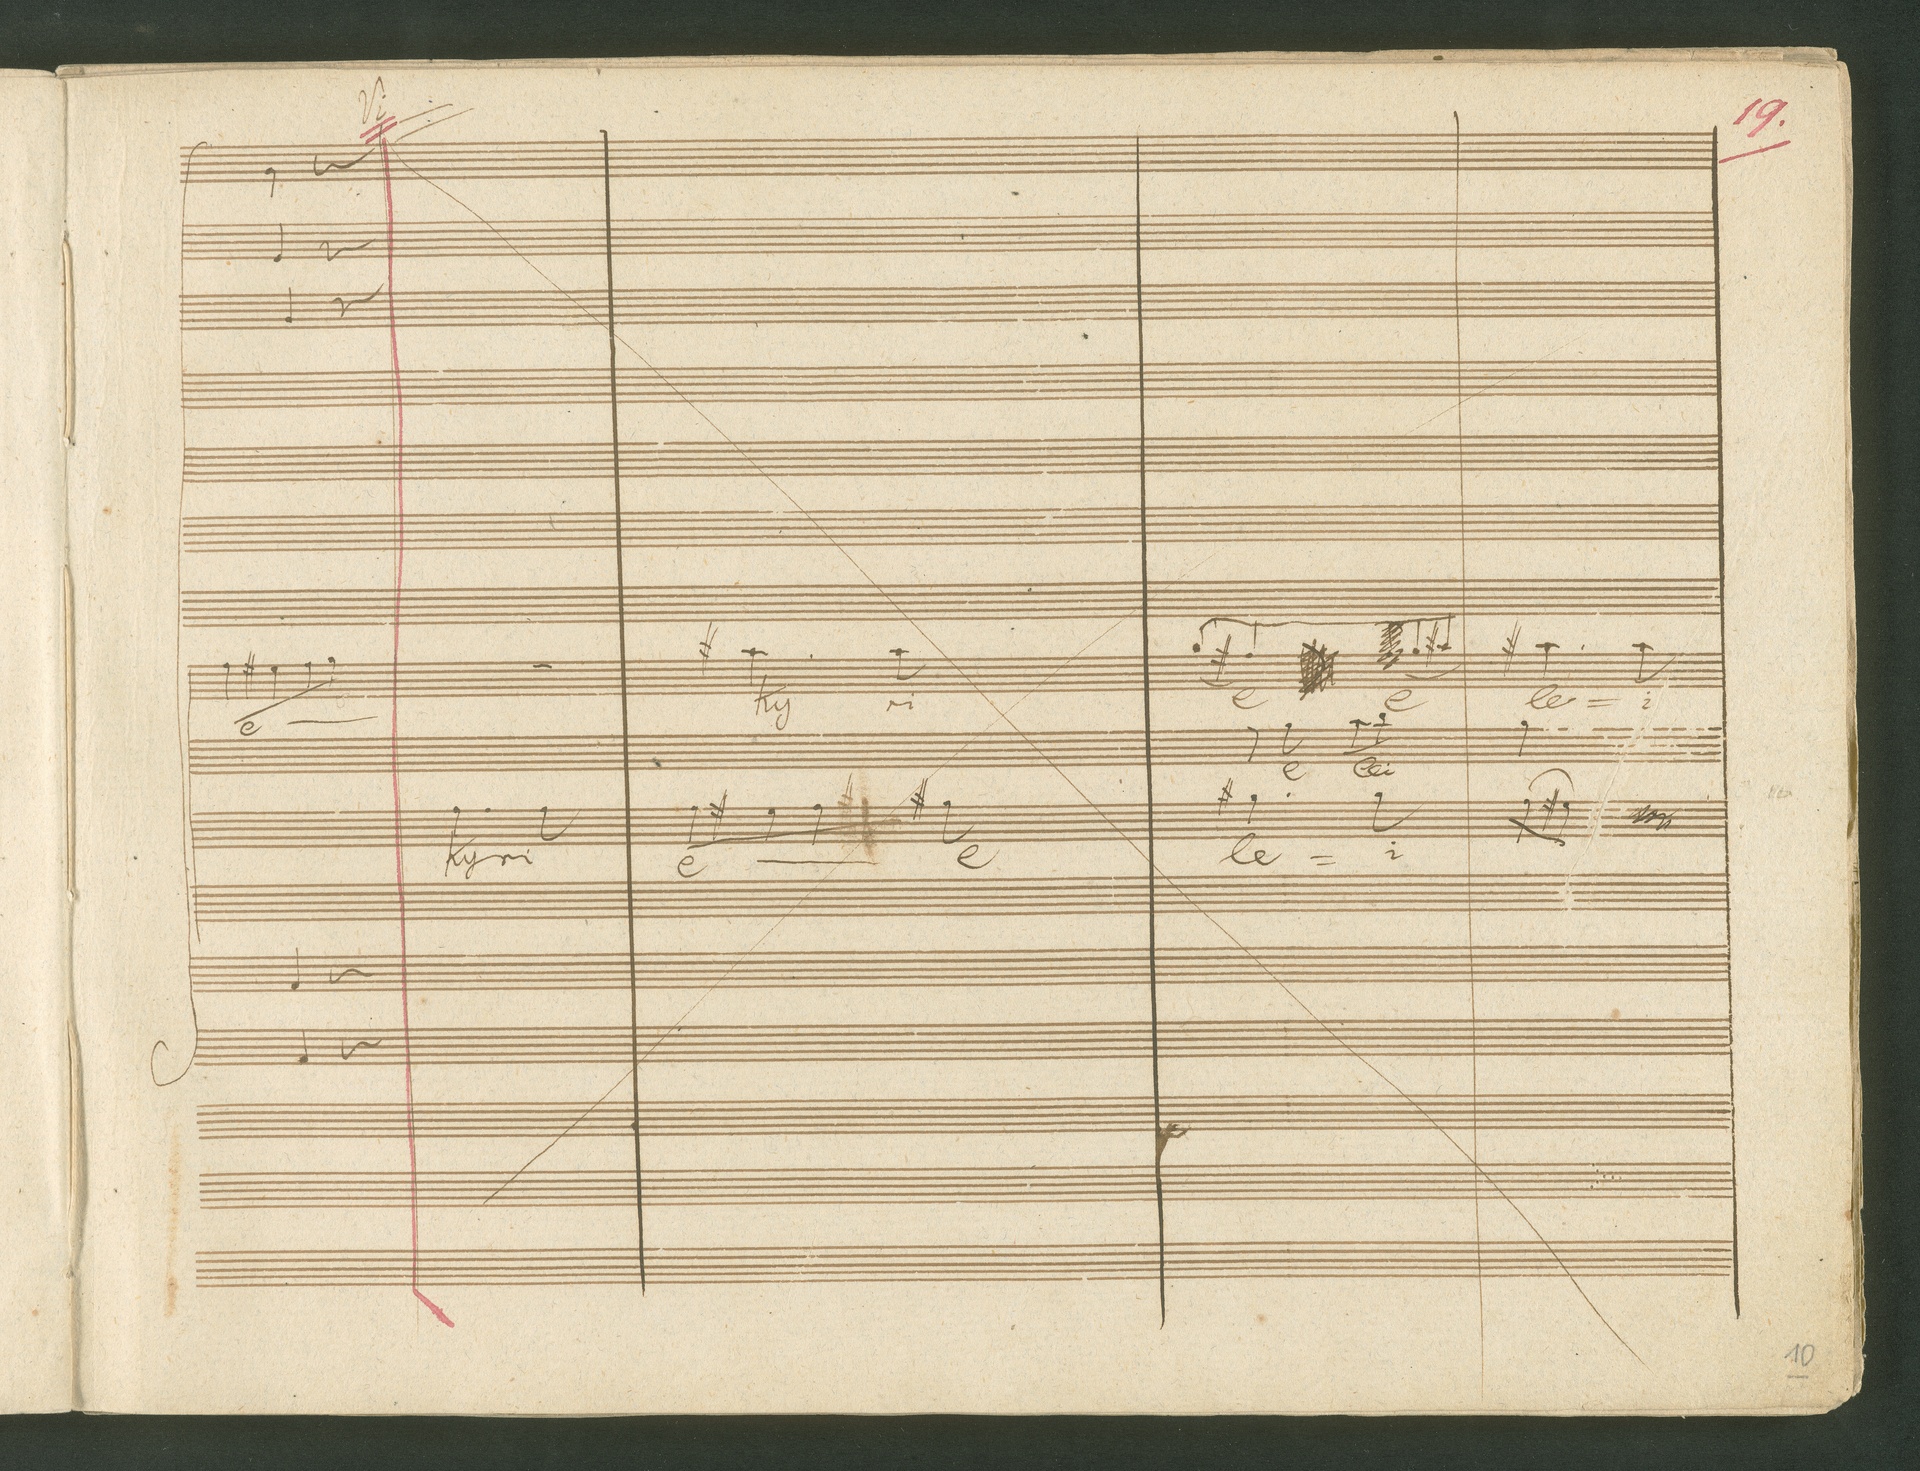 Vi
19.
e
Ky ri e e le = i
e lei
Kyri e e le = i
10